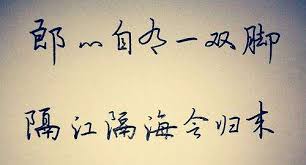 郎心自有一双脚
隔江隔海会归来